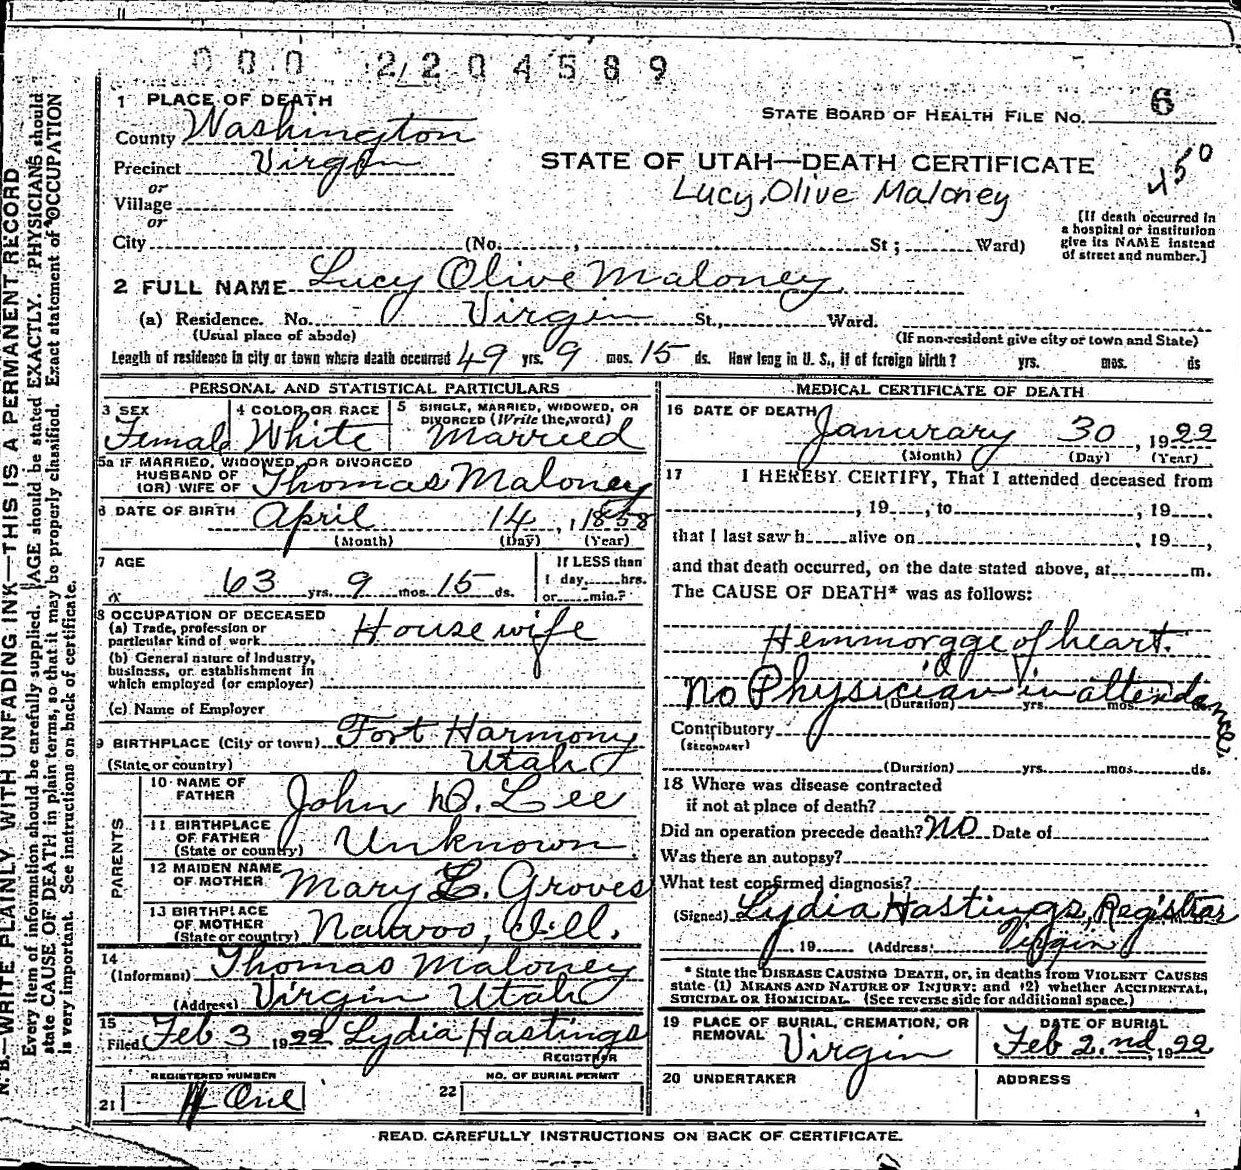 000 2204589
1 PLACE OF DEATH
STATE BOARD OF HEALTH FILE NO. 6
County Washington
Precinct Virgin
STATE OF UTAH—DEATH CERTIFICATE
450
or
Lucy Olive Maloney
Village
or
[If death occurred in
a hospital or institution
give its NAME instead
of street and number.]
City (No. , St ; Ward)
2 FULL NAME Lucy Olive Maloney
(a) Residence. No. Virgin St., Ward.
(Usual place of abode) (If non-resident give city or town and State)
Length of residence in city or town where death occurred 49 yrs. 9 mos. 15 ds. How long in U. S., if of foreign birth? yrs. mos. ds
PERSONAL AND STATISTICAL PARTICULARS
3 SEX
Female
4 COLOR OR RACE
White
5 SINGLE, MARRIED, WIDOWED, OR
DIVORCED (Write the word)
Married
5a IF MARRIED, WIDOWED, OR DIVORCED
HUSBAND OF
(OR) WIFE OF Thomas Maloney
6 DATE OF BIRTH April 14, 1858
(Month) (Day) (Year)
7 AGE
63 yrs. 9 mos. 15 ds.
If LESS than
1 day, hrs.
or min.?
8 OCCUPATION OF DECEASED
(a) Trade, profession or
particular kind of work Housewife
(b) General nature of Industry,
business, or establishment in
which employed (or employer)
(c) Name of Employer
9 BIRTHPLACE (City or town) Fort Harmony
(State or country) Utah
PARENTS
10 NAME OF
FATHER John D. Lee
11 BIRTHPLACE
OF FATHER
(State or country) Unknown
12 MAIDEN NAME
OF MOTHER Mary L. Groves
13 BIRTHPLACE
OF MOTHER
(State or country) Nauvoo, Ill.
14
(Informant) Thomas Maloney
(Address) Virgin Utah
15
Filed Feb 3 1922 Lydia Hastings
REGISTRAR
REGISTERED NUMBER
21 One
NO. OF BURIAL PERMIT
22
MEDICAL CERTIFICATE OF DEATH
16 DATE OF DEATH
Janurary 30, 1922
(Month) (Day) (Year)
17 I HEREBY CERTIFY, That I attended deceased from
, 19 , to , 19 ,
that I last saw h alive on , 19 ,
and that death occurred, on the date stated above, at m.
The CAUSE OF DEATH* was as follows:
Hemmorgge of heart.
No Physician in attendance
(Duration) yrs. mos. ds.
Contributory
(SECONDARY)
(Duration) yrs. mos. ds.
18 Where was disease contracted
if not at place of death?
Did an operation precede death? NO Date of
Was there an autopsy?
What test confirmed diagnosis?
(Signed) Lydia Hastings, Registrar
, 19 (Address) Virgin
* State the DISEASE CAUSING DEATH, or, in deaths from VIOLENT CAUSES
state (1) MEANS AND NATURE OF INJURY; and (2) whether ACCIDENTAL,
SUICIDAL OR HOMICIDAL. (See reverse side for additional space.)
19 PLACE OF BURIAL, CREMATION, OR
REMOVAL Virgin
DATE OF BURIAL
Feb 2.nd 1922
20 UNDERTAKER
ADDRESS
READ CAREFULLY INSTRUCTIONS ON BACK OF CERTIFICATE.
N. B.—WRITE PLAINLY WITH UNFADING INK—THIS IS A PERMANENT RECORD
Every item of information should be carefully supplied. AGE should be stated EXACTLY. PHYSICIANS should
state CAUSE OF DEATH in plain terms, so that it may be properly classified. Exact statement of OCCUPATION
is very important. See instructions on back of certificate.